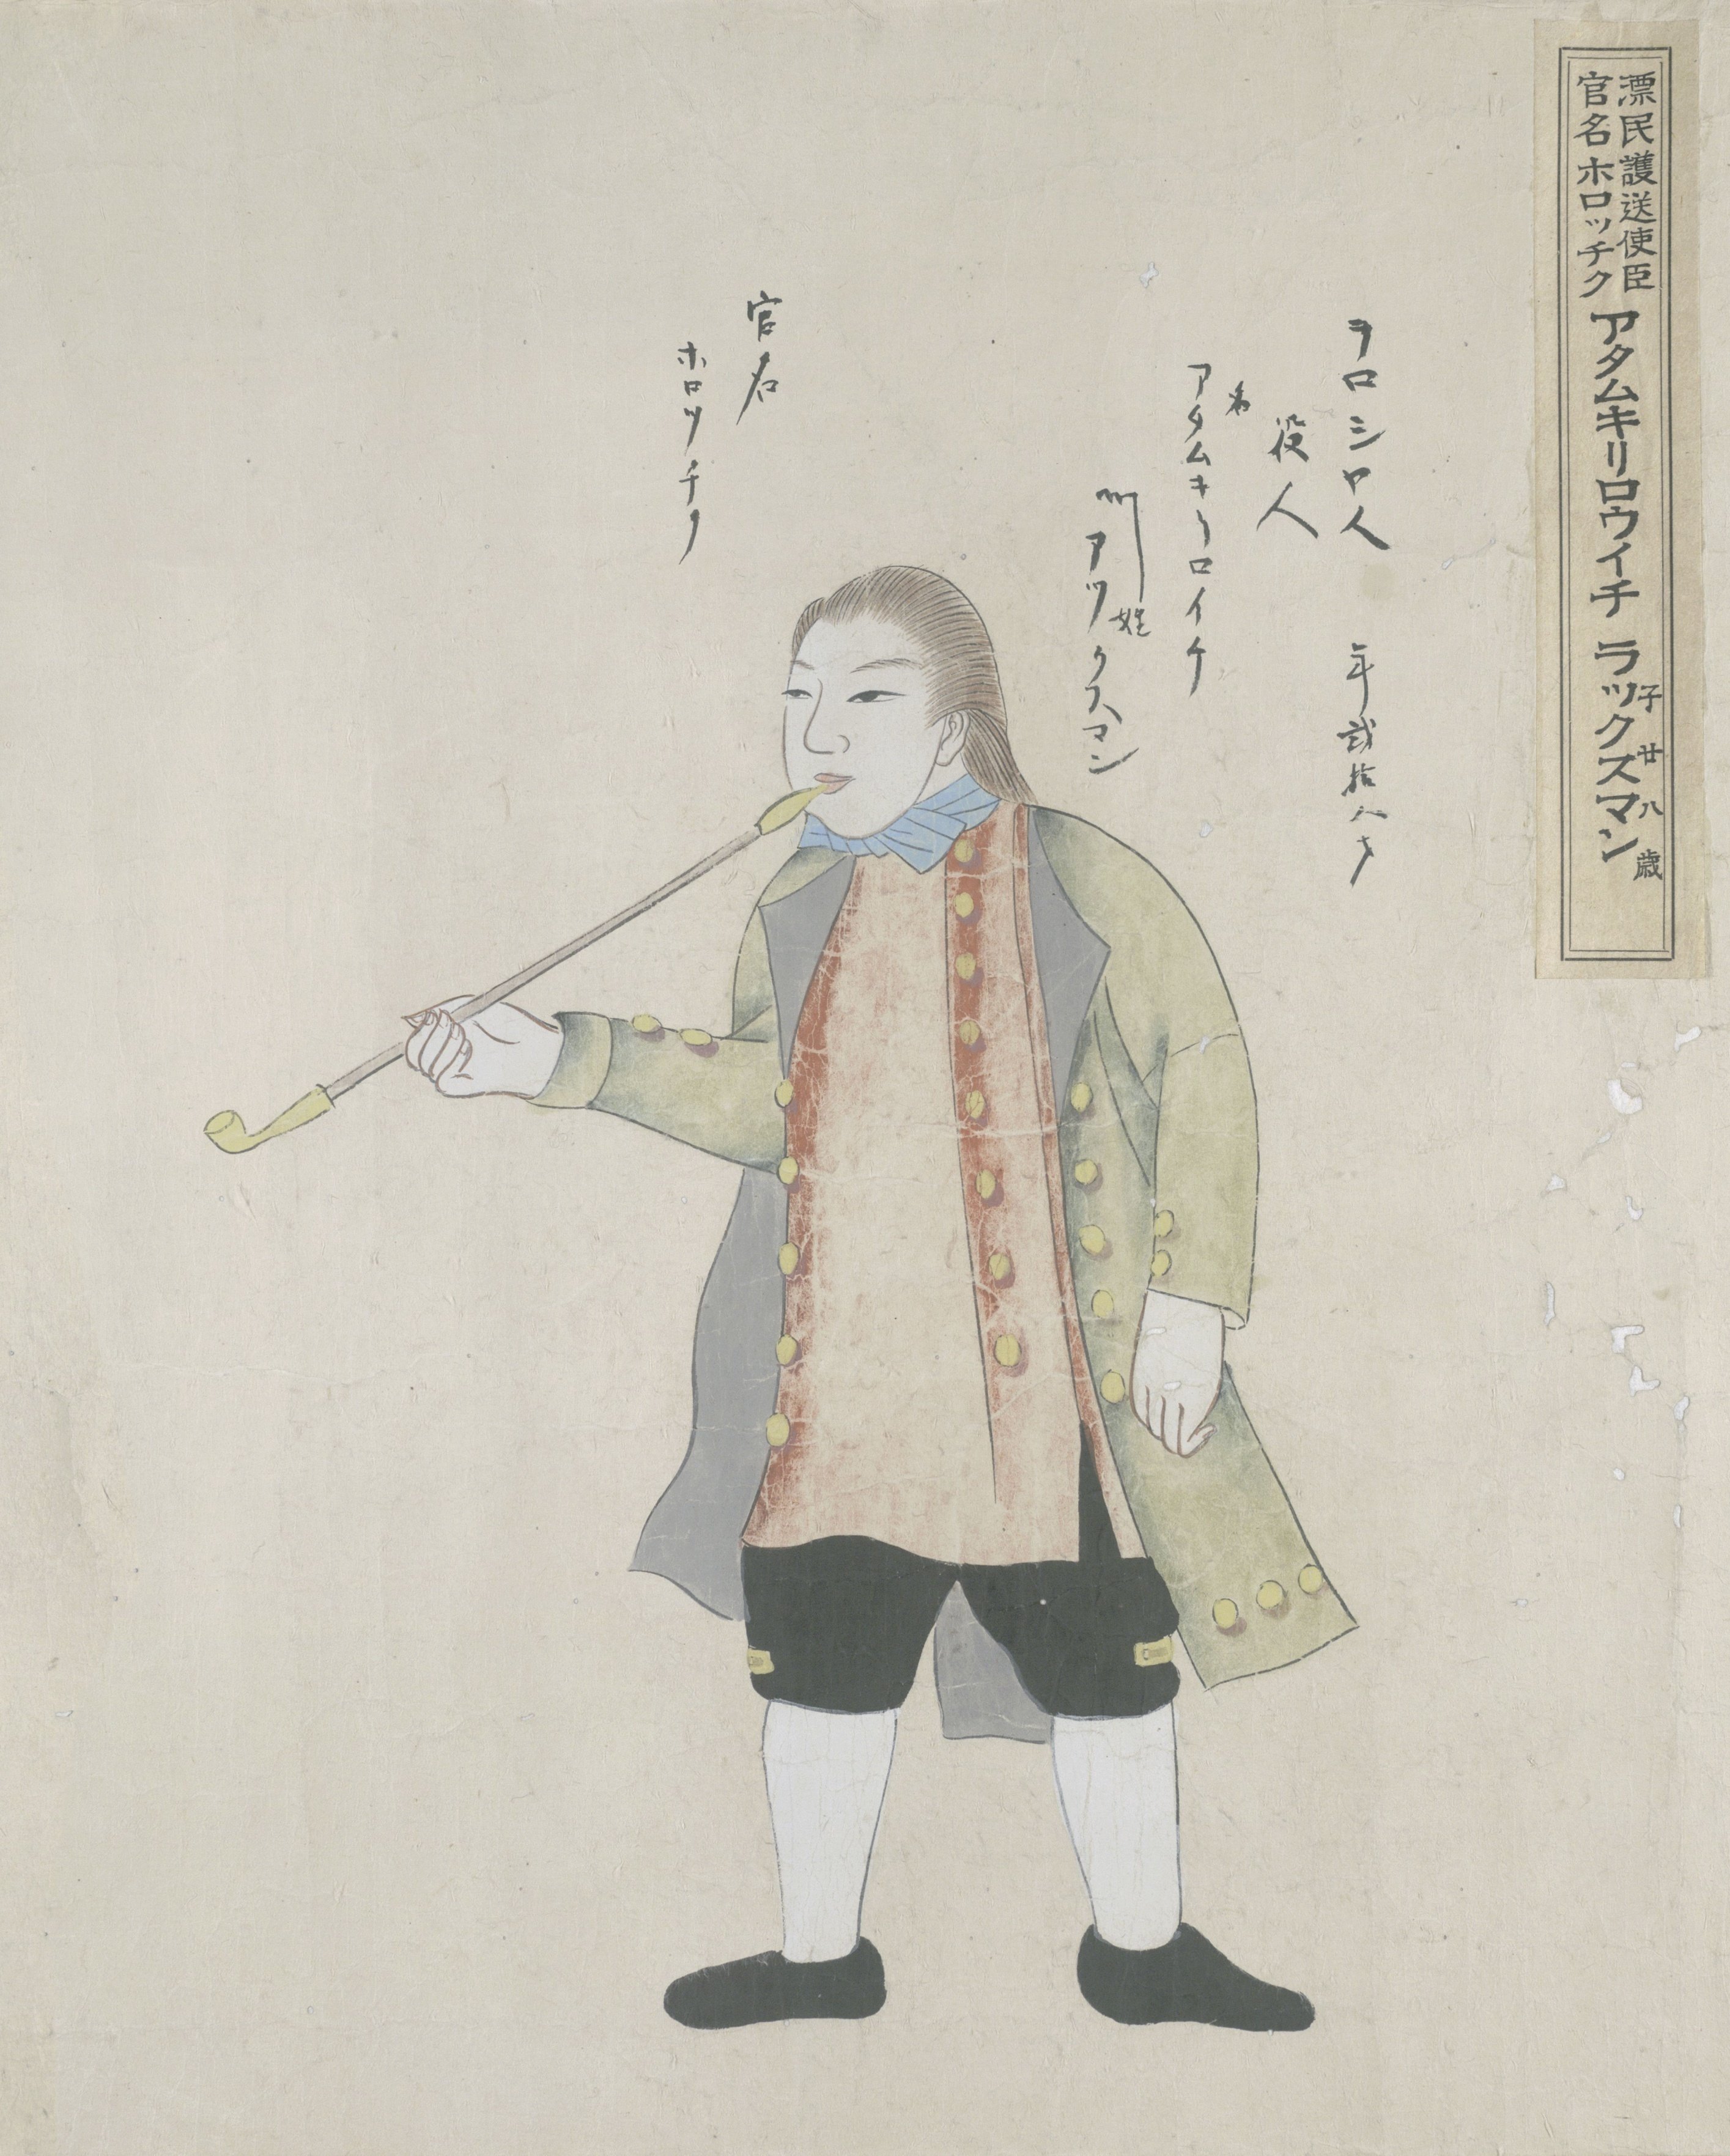 漂民護送使臣
官名ホロッチク
アタムキリロウイチ ラックスマン
子廿八歳
ヲロシヤ人 年貳拾八才
役人
名
アタムキリロイチ
姓
アツクスマン
官名
ホロツチク